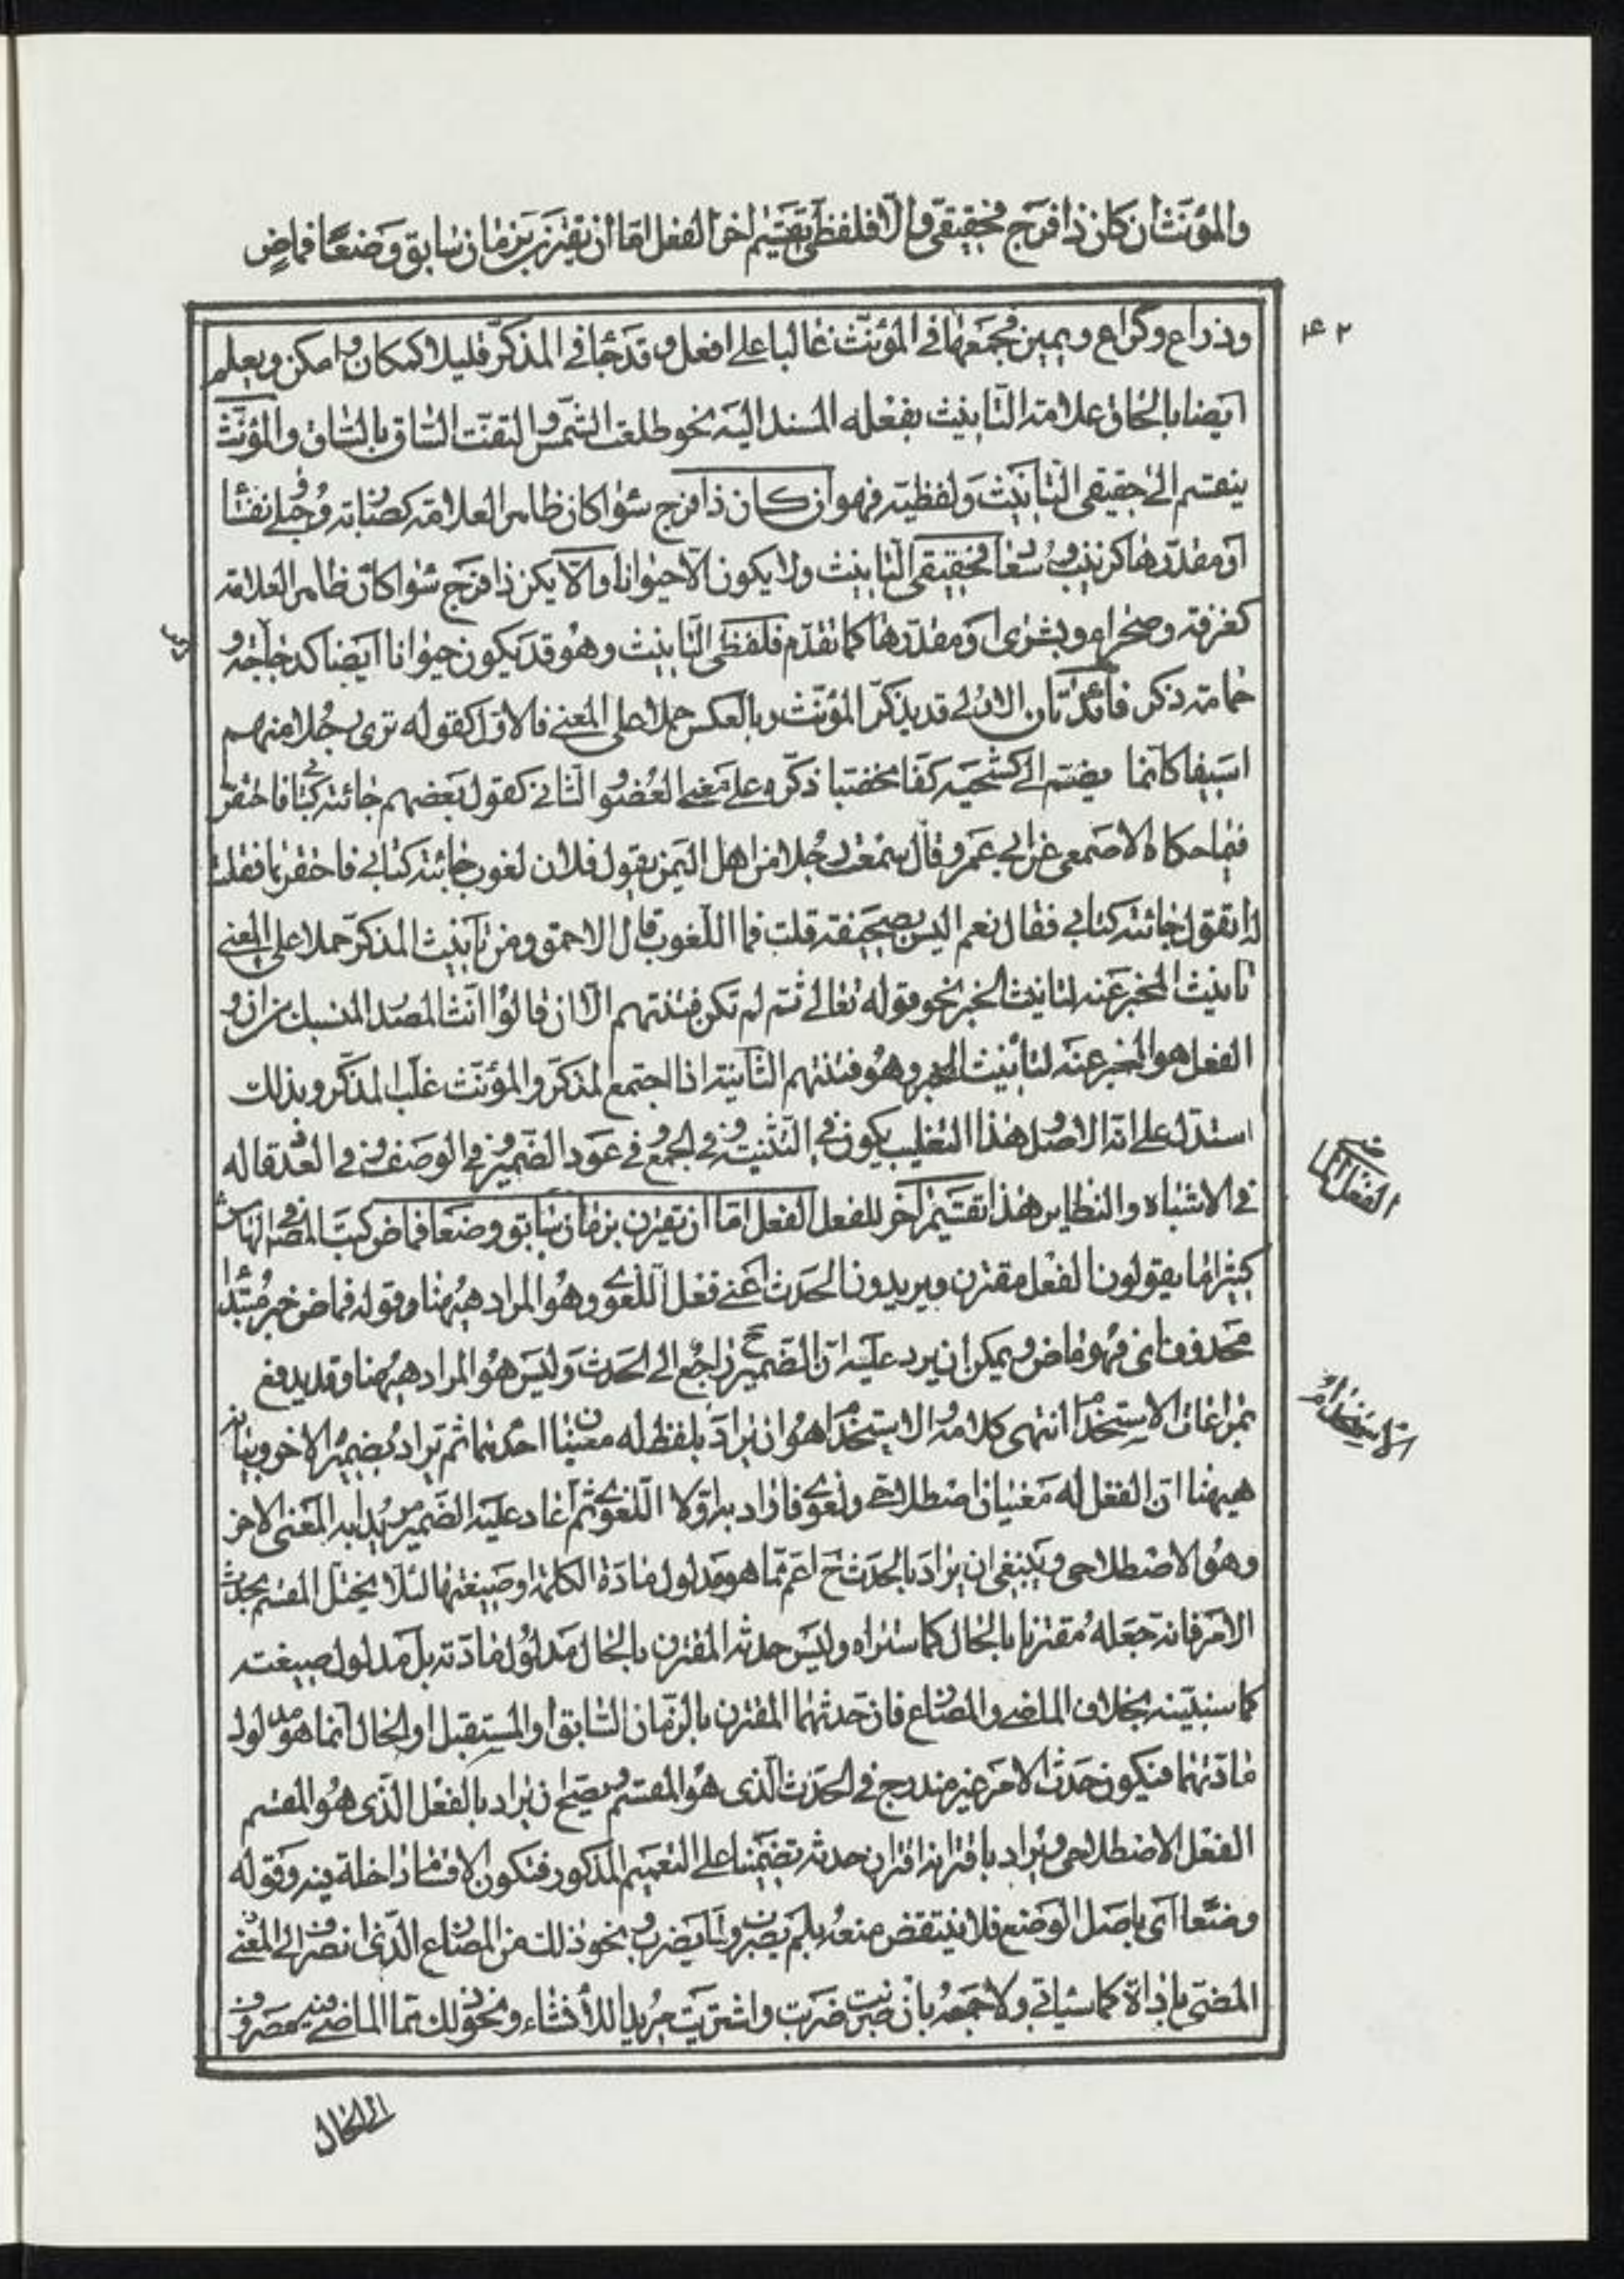 والمؤنّث ان كان ذا فرج فحقيقيّ والّا فلفظيّ تقسيم اخر الفعل امّا ان يقترن بزمان سابق وضعًا فماضٍ
۴۲
وذراع وكراع ويمين فجمعها في المؤنّث غالبا على افعل وقد جاء في المذكّر قليلا كمكان وامكن ويعلم
ايضا بالحاق علامة التأنيث بفعله المسند اليه نحو طلعت الشمس والتفّت السّاق بالسّاق والمؤنّث
ينقسم الى حقيقي التأنيث ولفظيّه فهو ان كان ذا فرج سواء كان ظاهر العلامة كضاربة وحبلى ونفساء
او مقدّرها كزينب وسعاد فحقيقي التأنيث ولا يكون الّا حيوانا والّا يكن ذا فرج سواء كان ظاهر العلامة
كغرفة وصحراء وبشرى او مقدّرها كما تقدّم فلفظي التأنيث وهو قد يكون حيوانا ايضا كدجاجة و
حمامة ذكر فائدتان الاولى قد يذكّر المؤنّث وبالعكس حملا على المعنى فالاوّل كقوله ترى رجلا منهم
اسيفا كأنما يضمّ الى كشحيه كفّا مخضبا ذكّره على معنى العضو والثاني كقول بعضهم جائته كتابي فاحتقرها
فيما حكاه الاصمعي عن ابي عمرو قال سمعت رجلا من اهل اليمن يقول فلان لغوب جائته كتابي فاحتقرها فقلت
له اتقول جائته كتابي فقال نعم اليس بصحيفة قلت فما اللّغوب قال الاحمق ومن تأنيث المذكّر حملا على المعنى
تأنيث المخبر عنه لتأنيث الخبر نحو قوله تعالى ثمّ لم تكن فتنتهم الّا ان قالوا انّث المصدر المنسبك من ان و
الفعل هو المخبر عنه لتأنيث الخبر وهو فتنتهم الثانية اذا اجتمع المذكّر والمؤنّث غلّب المذكّر وبذلك
استدلّ على انّه الاصل وهذا التغليب يكون في التثنية وفي الجمع وفي عود الضمير وفي الوصف وفي العدد قاله
في الاشباه والنظاير هذا تقسيم آخر للفعل الفعل امّا ان يقترن بزمان سابق وضعا فماض كتب المصنف في الهامش
كثيرا ما يقولون الفعل مقترن ويريدون الحدث اعني فعل اللّغوي وهو المراد هيهنا وقوله فماض خبر مبتدأ
محذوف اي فهو ماض ويمكن ان يرد عليه انّ الضمير ح راجع الى الحدث وليس هو المراد هيهنا وقد يدفع
بمراعات الاستخدام انتهى كلامه والاستخدام هو ان يراد بلفظ له معنيان احدهما ثم يراد بضميره الاخر وبيانه
هيهنا انّ الفعل له معنيان اصطلاحي ولغوي فاراد به اوّلا اللّغوي ثم اعاد عليه الضمير مريدا به المعنى الاخر
وهو الاصطلاحي وينبغي ان يراد بالحدث ح اعمّ ممّا هو مدلول مادة الكلمة او صيغتها لئلّا يختلّ المقسم بحدث
الامر فانه جعله مقترنا بالحال كما ستراه وليس حدثه المقترن بالحال مدلول مادّته بل مدلول صيغته
كما سنبيّنه بخلاف الماضي والمضارع فان حدثهما المقترن بالزّمان السّابق او المستقبل او الحال انّما هو مدلول
مادّتهما فيكون حدث الامر غير مندرج في الحدث الّذي هو المقسم ويصحّ ان يراد بالفعل الّذي هو المقسم
الفعل الاصطلاحي ويراد باقترانه اقتران حدثه تضمّنيا على التعميم المذكور فتكون الاقسام داخلة فيه وقوله
وضعا اي باصل الوضع فلا ينتقض منعه بلم يضرب ولمّا يضرب ونحو ذلك من المضارع الّذي انصرف الى المعنى
المضيّ باداة كما سيأتي ولا جمعه بان ضربت ضربت واشتريت مريدا للأنشاء ونحو ذلك ممّا الماضي فيه مصروف
الفعل الماضي
الاستخدام
الى الحال